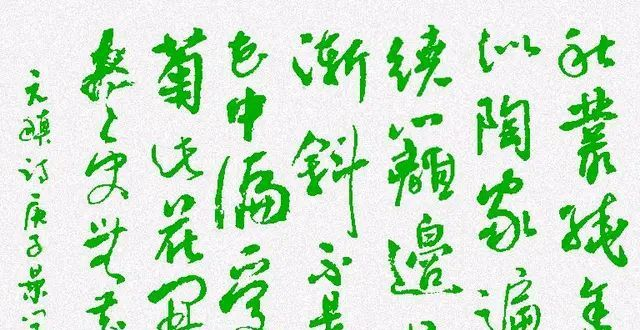 秋叢繞舍
似陶家遍
繞籬邊日
漸斜不是
花中偏愛
菊此花開
盡更無花
元稹詩庚子